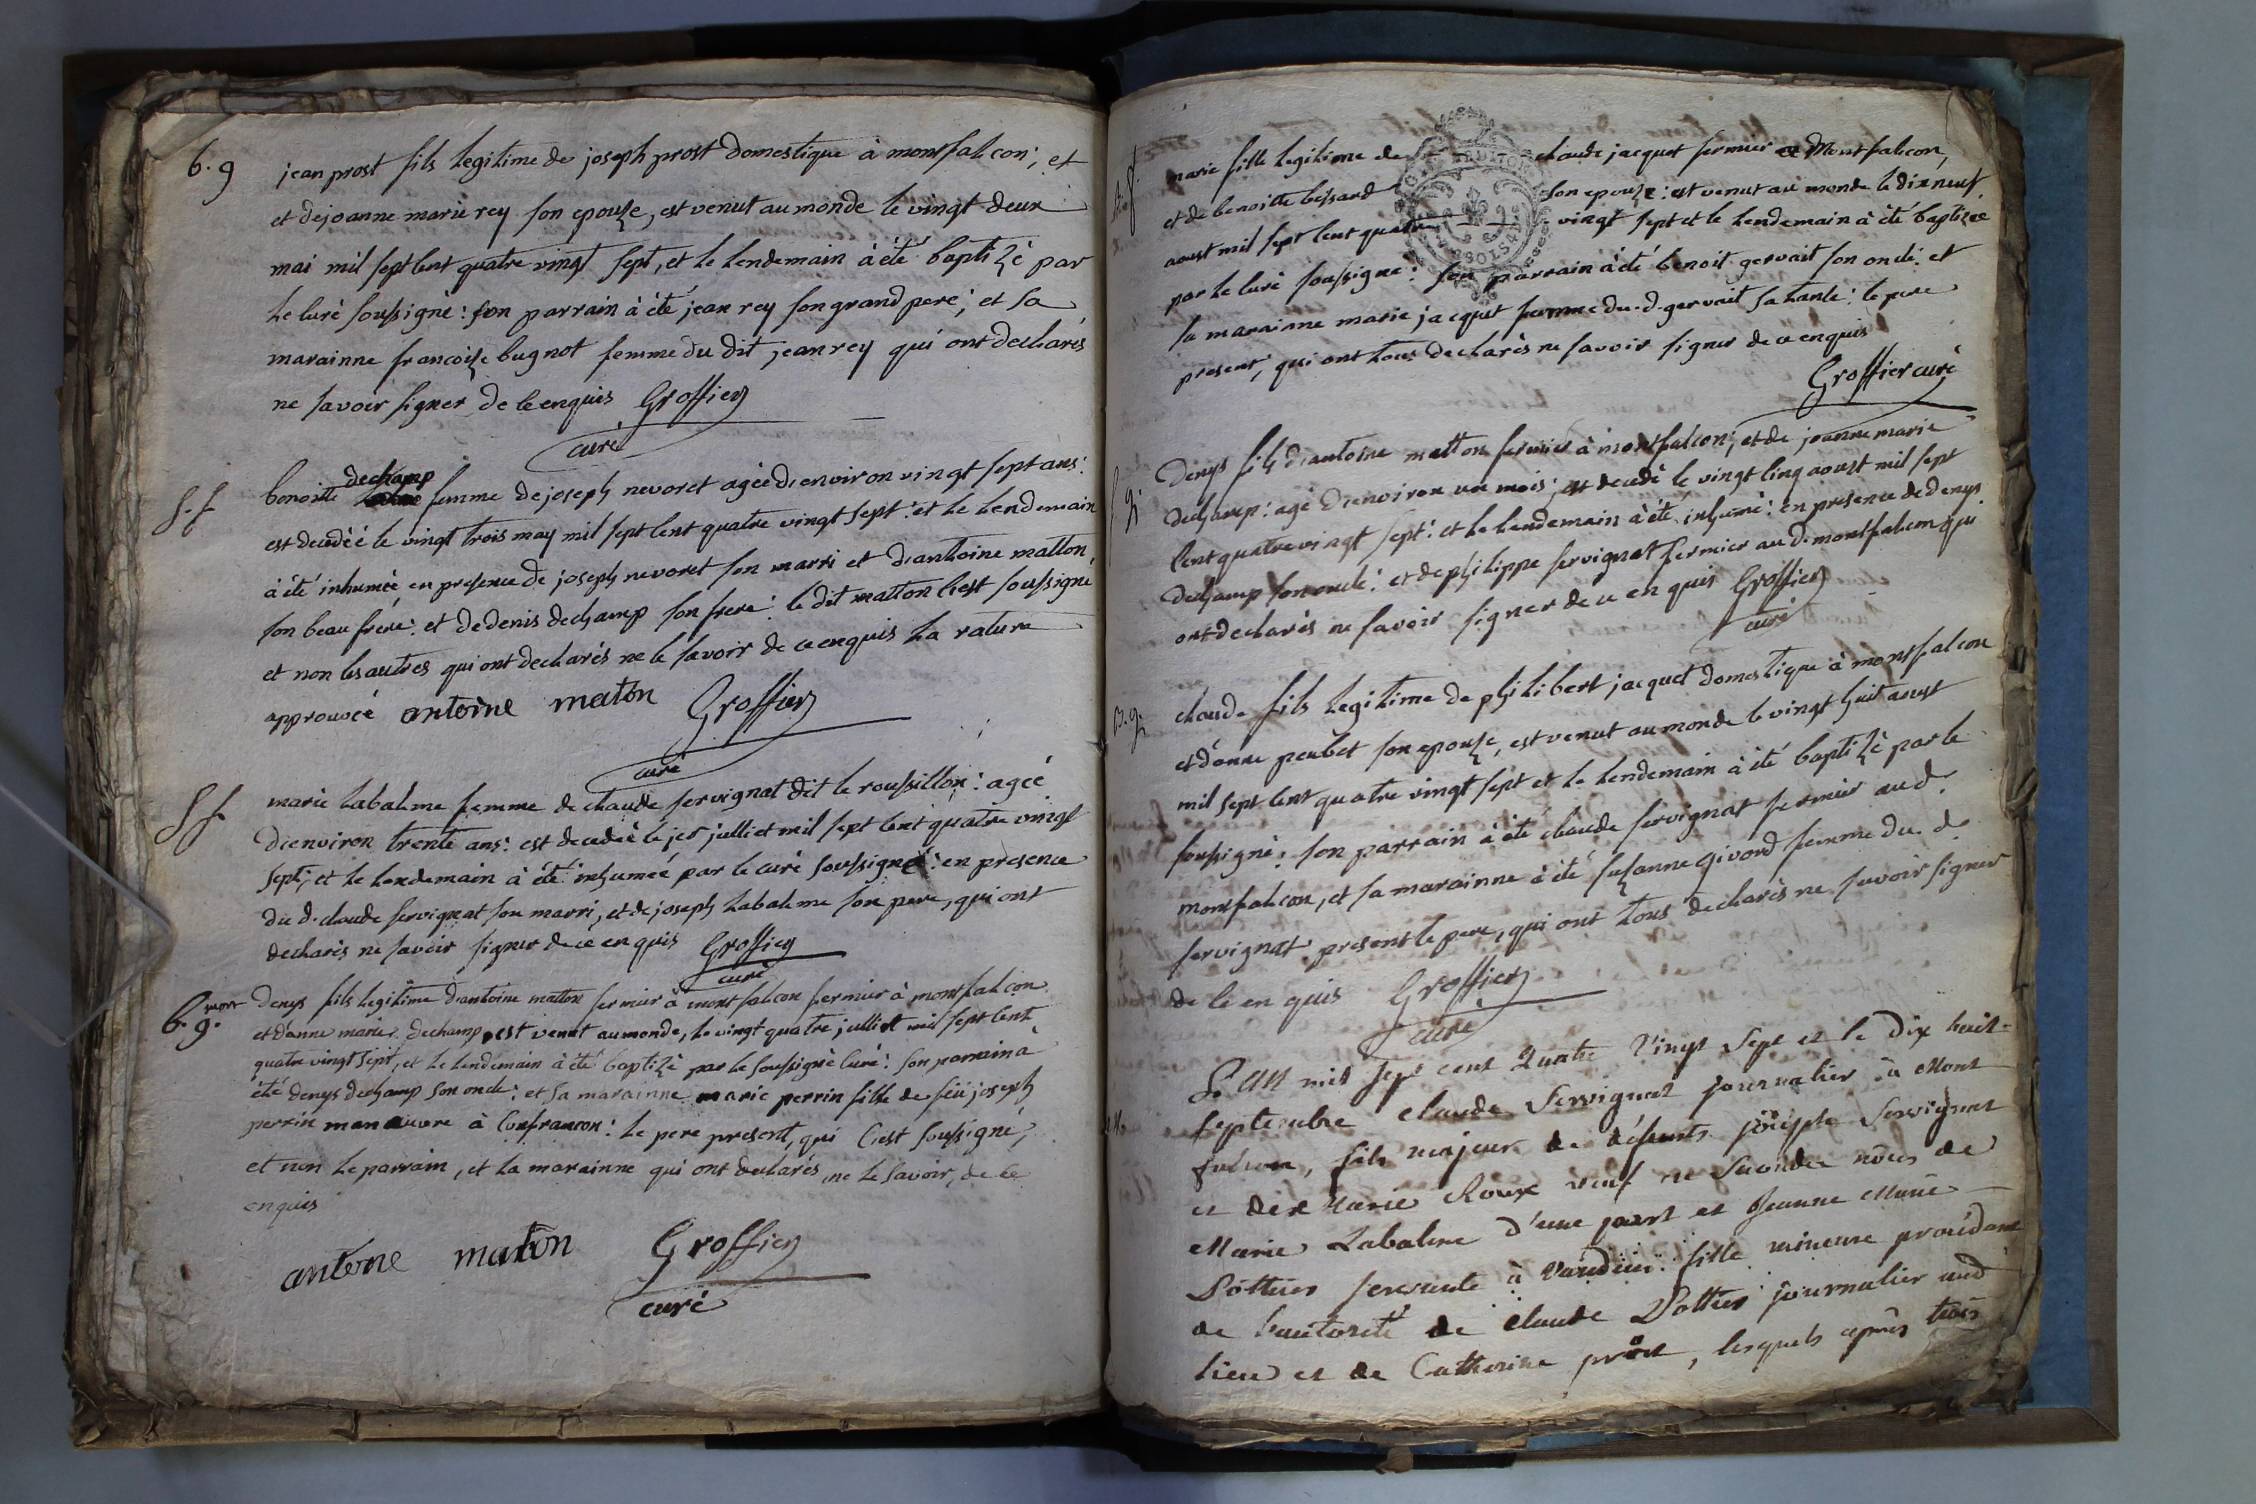 b. g
jean prost fils legitime de joseph prost domestique à montfalcon; et
et de joanne marie rey son epouze, est venut au monde le vingt deux
mai mil sept cent quatre vingt sept, et le lendemain à été baptizé par
le curé soussigné: son parrain à été jean rey son grand pere; et sa
marainne francoize bugnot femme du dit jean rey qui ont declarés
ne savoir signer de ce enquis Groffier
curé
S. f
benoitte dechamp femme de joseph nevoret agée d'environ vingt sept ans:
est decedée le vingt trois may mil sept cent quatre vingt sept: et le lendemain
à été inhumée en presence de joseph nevoret son marri et d'antoine matton
son beau frere: et de denis dechamp son frere: le dit matton c'est soussigné
et non les autres qui ont declarés ne le savoir de ce enquis la rature
approuvée antoine maton Groffier
curé
S f.
marie labalme femme de claude servignat dit le roussillon: agée
d'environ trente ans: est decedée le jer julliet mil sept cent quatre vingt
sept; et le lendemain à été inhumée par le curé soussigné: en presence
du d. claude servignat son marri, et de joseph labalme son pere, qui ont
declarés ne savoir signer de ce enquis Groffier
curé
b. g. mort
denys fils legitime d'antoine matton fermier à montfalcon fermier à montfalcon
et d'anne marie dechamp, est venut au monde, le vingt quatre julliet mil sept cent
quatre vingt sept, et le lendemain à été baptizé par le soussigné curé: son parrain a
été denys dechamp son oncle: et sa marainne marie perrin fille de feü joseph
perrin manœuvre à Confrancon: le pere present, qui c'est soussigné,
et non le parrain, et la marainne qui ont declarés ne le savoir, de ce
enquis
antone maton Groffier
curé
marie fille legitime de claude jacquet fermier a Montfalcon,
et de benoitte bessard son epouze: est venut au monde le dixneuf
aoust mil sept cent quatre vingt sept et le lendemain à été baptizée
par le curé soussigné: son parrain à été benoit gervait son oncle: et
sa marainne marie jacquet femme du. d. gervait sa tante: le pere
present, qui ont tous declarés ne savoir signer de ce enquis
Groffier curé
S. g.
denys fils d'antoine matton fermier à montfalcon; et de joanne marie
dechamp: agé d'environ un mois; est decedé le vingt cinq aoust mil sept
cent quatre vingt sept: et le lendemain à été inhumé: en presence de denys
dechamp son oncle: et de philippe servignat fermier au d. montfalcon qui
ont declarés ne savoir signer de ce enquis Groffier
curé
B. g.
claude fils legitime de philibert jacquet domestique à montfalcon
et d'anne peubet son epouze, est venut au monde le vingt huit aoust
mil sept cent quatre vingt sept et le lendemain à été baptizé par le
soussigné: son parrain à été claude servignat fermier au d.
montfalcon, et sa marainne à été suzanne givord femme du d.
servignat present le pere, qui ont tous declarés ne savoir signer
de ce enquis Groffier
curé
M.
L'an mil sept cent Quatre Vingt Sept et le Dix huit
septembre claude Servignat journalier à Mont
falcon, fils majeur de défunts joseph Servignat
et de Marie Roux veuf en secondes nôces de
Marie Labalme d'une part et Jeanne Marie
Pottier servante à Vandeins fille mineure procédant
de l'autorité de claude Pottier journalier aud
lieu et de Catherine prost, lesquels après trois